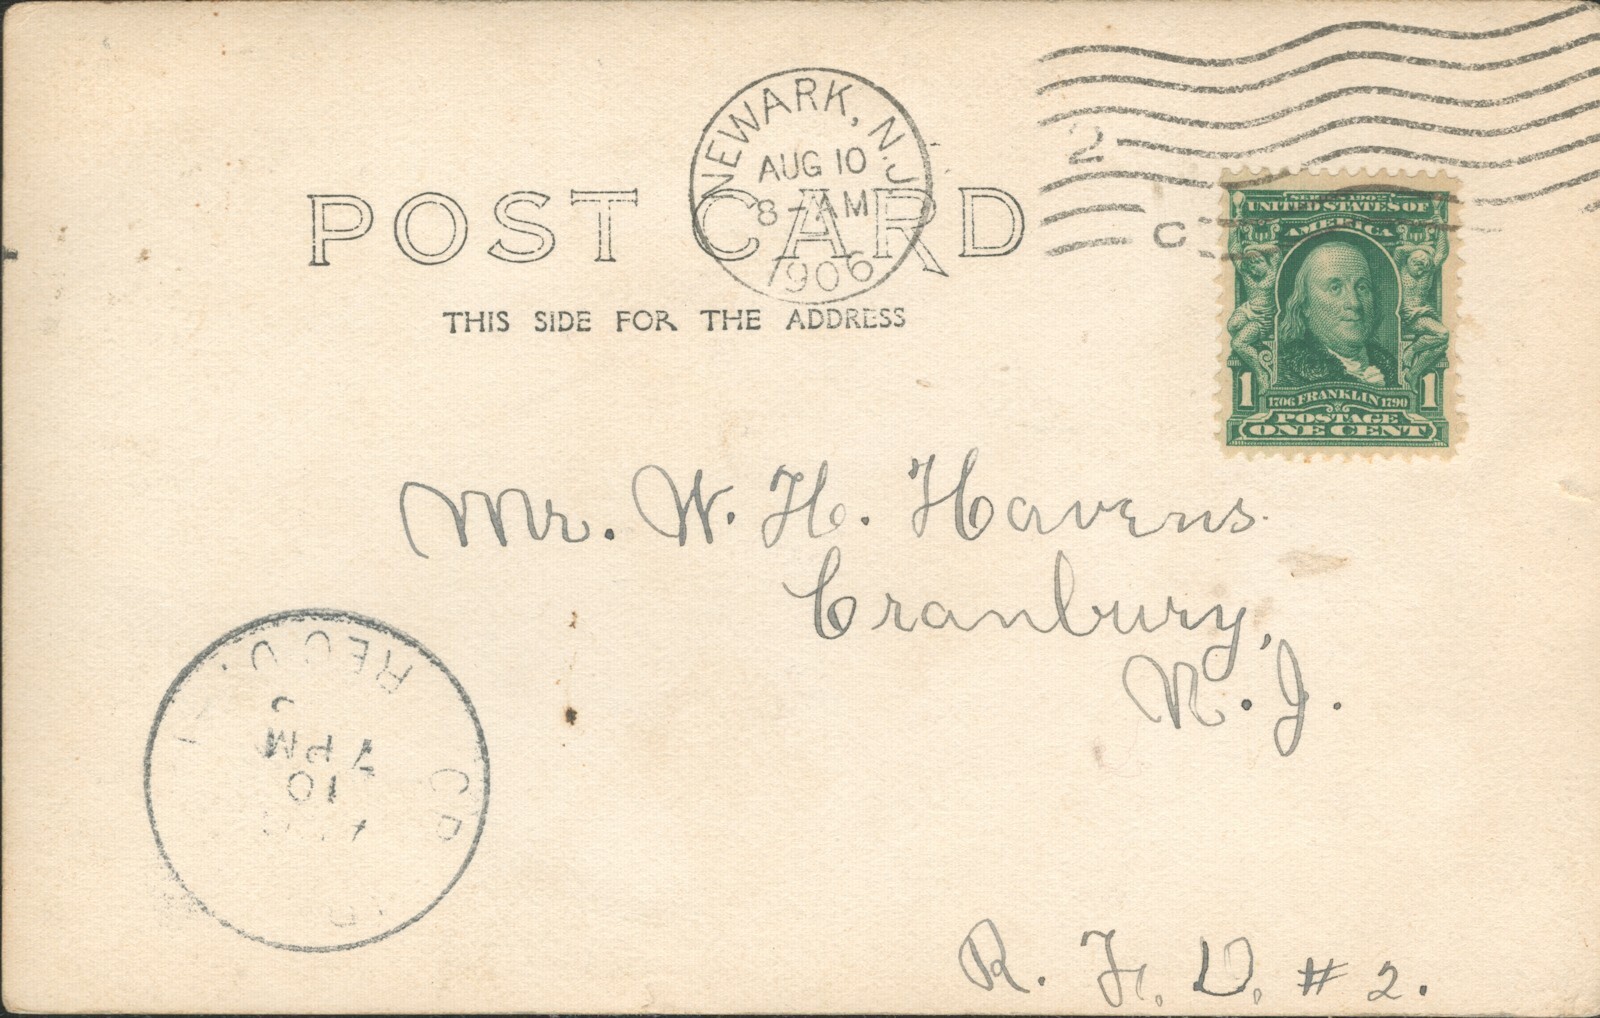 NEWARK, N.J.
AUG 10
8-AM
1906
2
C
POST CARD
THIS SIDE FOR THE ADDRESS
SERIES 1902
UNITED STATES OF
AMERICA
1 1
1706 FRANKLIN 1790
POSTAGE
ONE CENT
Mr. W. H. Havens.
Cranbury,
N. J.
REC'D.
10
7 PM
R. F. D. # 2.